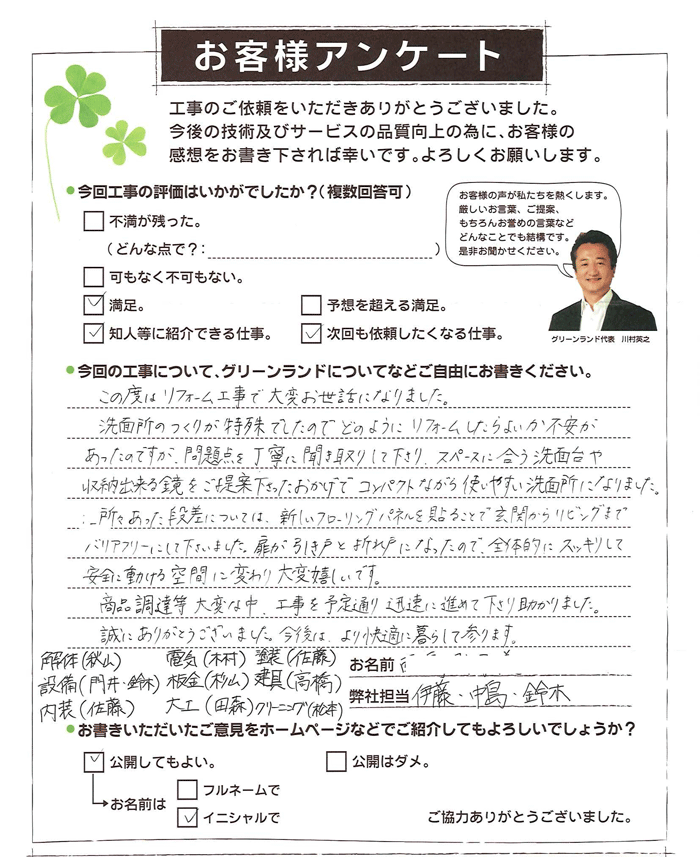 お客様アンケート
工事のご依頼をいただきありがとうございました。
今後の技術及びサービスの品質向上の為に、お客様の
感想をお書き下されば幸いです。よろしくお願いします。
今回工事の評価はいかがでしたか?(複数回答可)
お客様の声が私たちを熱くします。
厳しいお言葉、ご提案、
もちろんお誉めの言葉など
どんなことでも結構です。
是非お聞かせください。
グリーンランド代表 川村英之
不満が残った。
(どんな点で?: )
可もなく不可もない。
満足。 予想を超える満足。
知人等に紹介できる仕事。 次回も依頼したくなる仕事。
今回の工事について、グリーンランドについてなどご自由にお書きください。
この度はリフォーム工事で大変お世話になりました。
洗面所のつくりが特殊でしたのでどのようにリフォームしたらよいか不安が
あったのですが、問題点を丁寧に聞き取りして下さり、スペースに合う洗面台や
収納出来る鏡をご提案下さったおかげでコンパクトながら使いやすい洗面所になりました。
所々あった段差については、新しいフローリングパネルを貼ることで玄関からリビングまで
バリアフリーにして下さいました。扉が引き戸と折れ戸になったので、全体的にスッキリして
安全に動ける空間に変わり大変嬉しいです。
商品調達等大変な中、工事を予定通り迅速に進めて下さり助かりました。
誠にありがとうございました。今後は、より快適に暮らして参ります。
解体(秋山) 電気(木村) 塗装(佐藤)
設備(門井・鈴木) 板金(杉山) 建具(高橋)
内装(佐藤) 大工(田森) クリーニング(松本)
お名前
弊社担当 伊藤・中島・鈴木
お書きいただいたご意見をホームページなどでご紹介してもよろしいでしょうか?
公開してもよい。 公開はダメ。
お名前は フルネームで
イニシャルで
ご協力ありがとうございました。